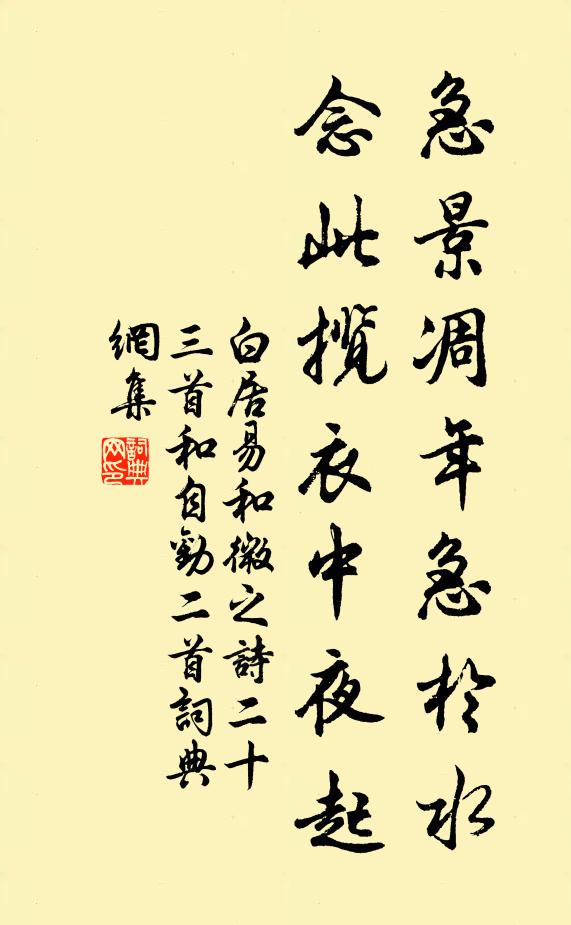 急景凋年急於水
念此攬衣中夜起
白居易和微之詩二十
三首和自勸二首詞典
網集
詞典
网印